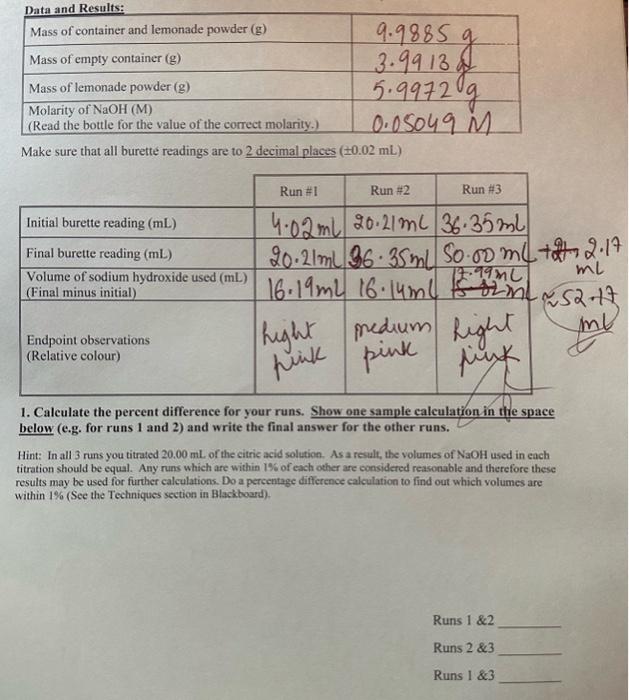 Data and Results:
Mass of container and lemonade powder (g) 9.9885 g
Mass of empty container (g) 3.9913 g
Mass of lemonade powder (g) 5.9972 g
Molarity of NaOH (M)
(Read the bottle for the value of the correct molarity.) 0.05049 M
Make sure that all burette readings are to 2 decimal places (±0.02 mL)
Run #1 Run #2 Run #3
Initial burette reading (mL) 4.02mL 20.21mL 36.35mL
Final burette reading (mL) 20.21mL 36.35mL 50.00 mL + 2.17 mL
Volume of sodium hydroxide used (mL)
(Final minus initial) 16.19mL 16.14mL ≈52.17 mL
Endpoint observations
(Relative colour) light pink medium pink light pink
1. Calculate the percent difference for your runs. Show one sample calculation in the space
below (e.g. for runs 1 and 2) and write the final answer for the other runs.
Hint: In all 3 runs you titrated 20.00 mL of the citric acid solution. As a result, the volumes of NaOH used in each
titration should be equal. Any runs which are within 1% of each other are considered reasonable and therefore these
results may be used for further calculations. Do a percentage difference calculation to find out which volumes are
within 1% (See the Techniques section in Blackboard).
Runs 1 &2
Runs 2 &3
Runs 1 &3